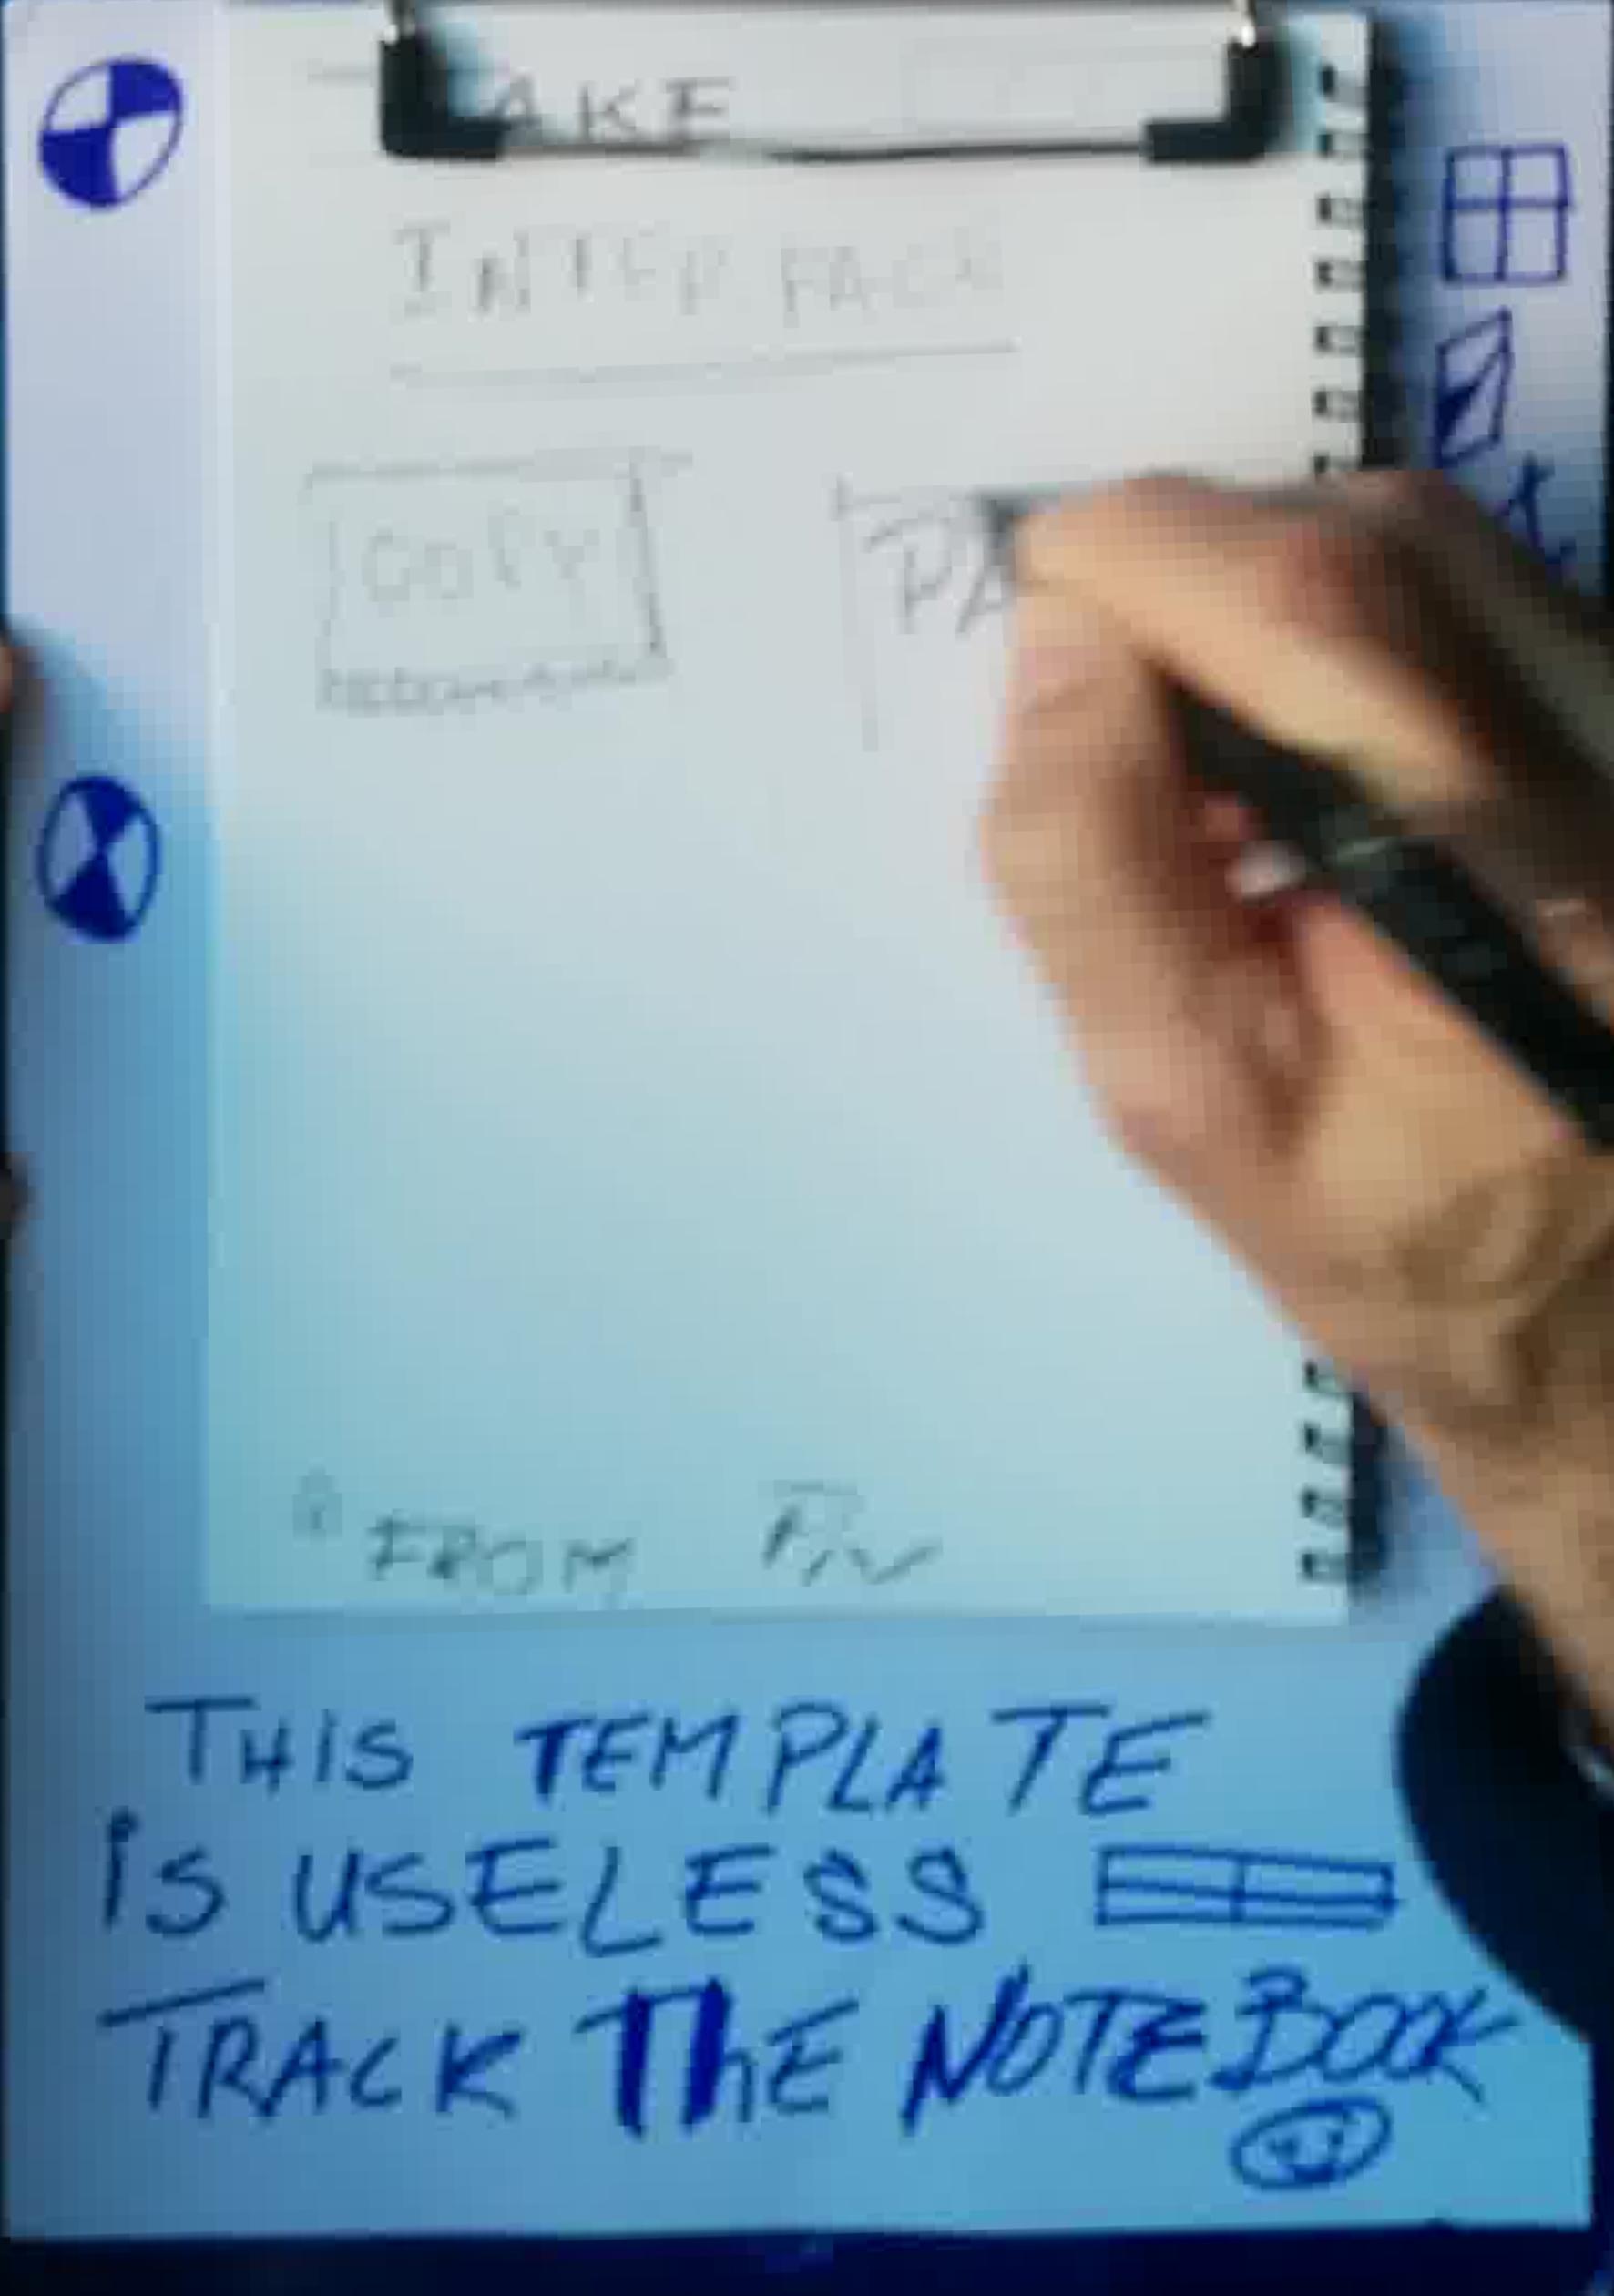 AKE
INTERFACE
COPY
PA
FROM
THIS TEMPLATE
iS USELESS
TRACK ThE NOTEBOOK